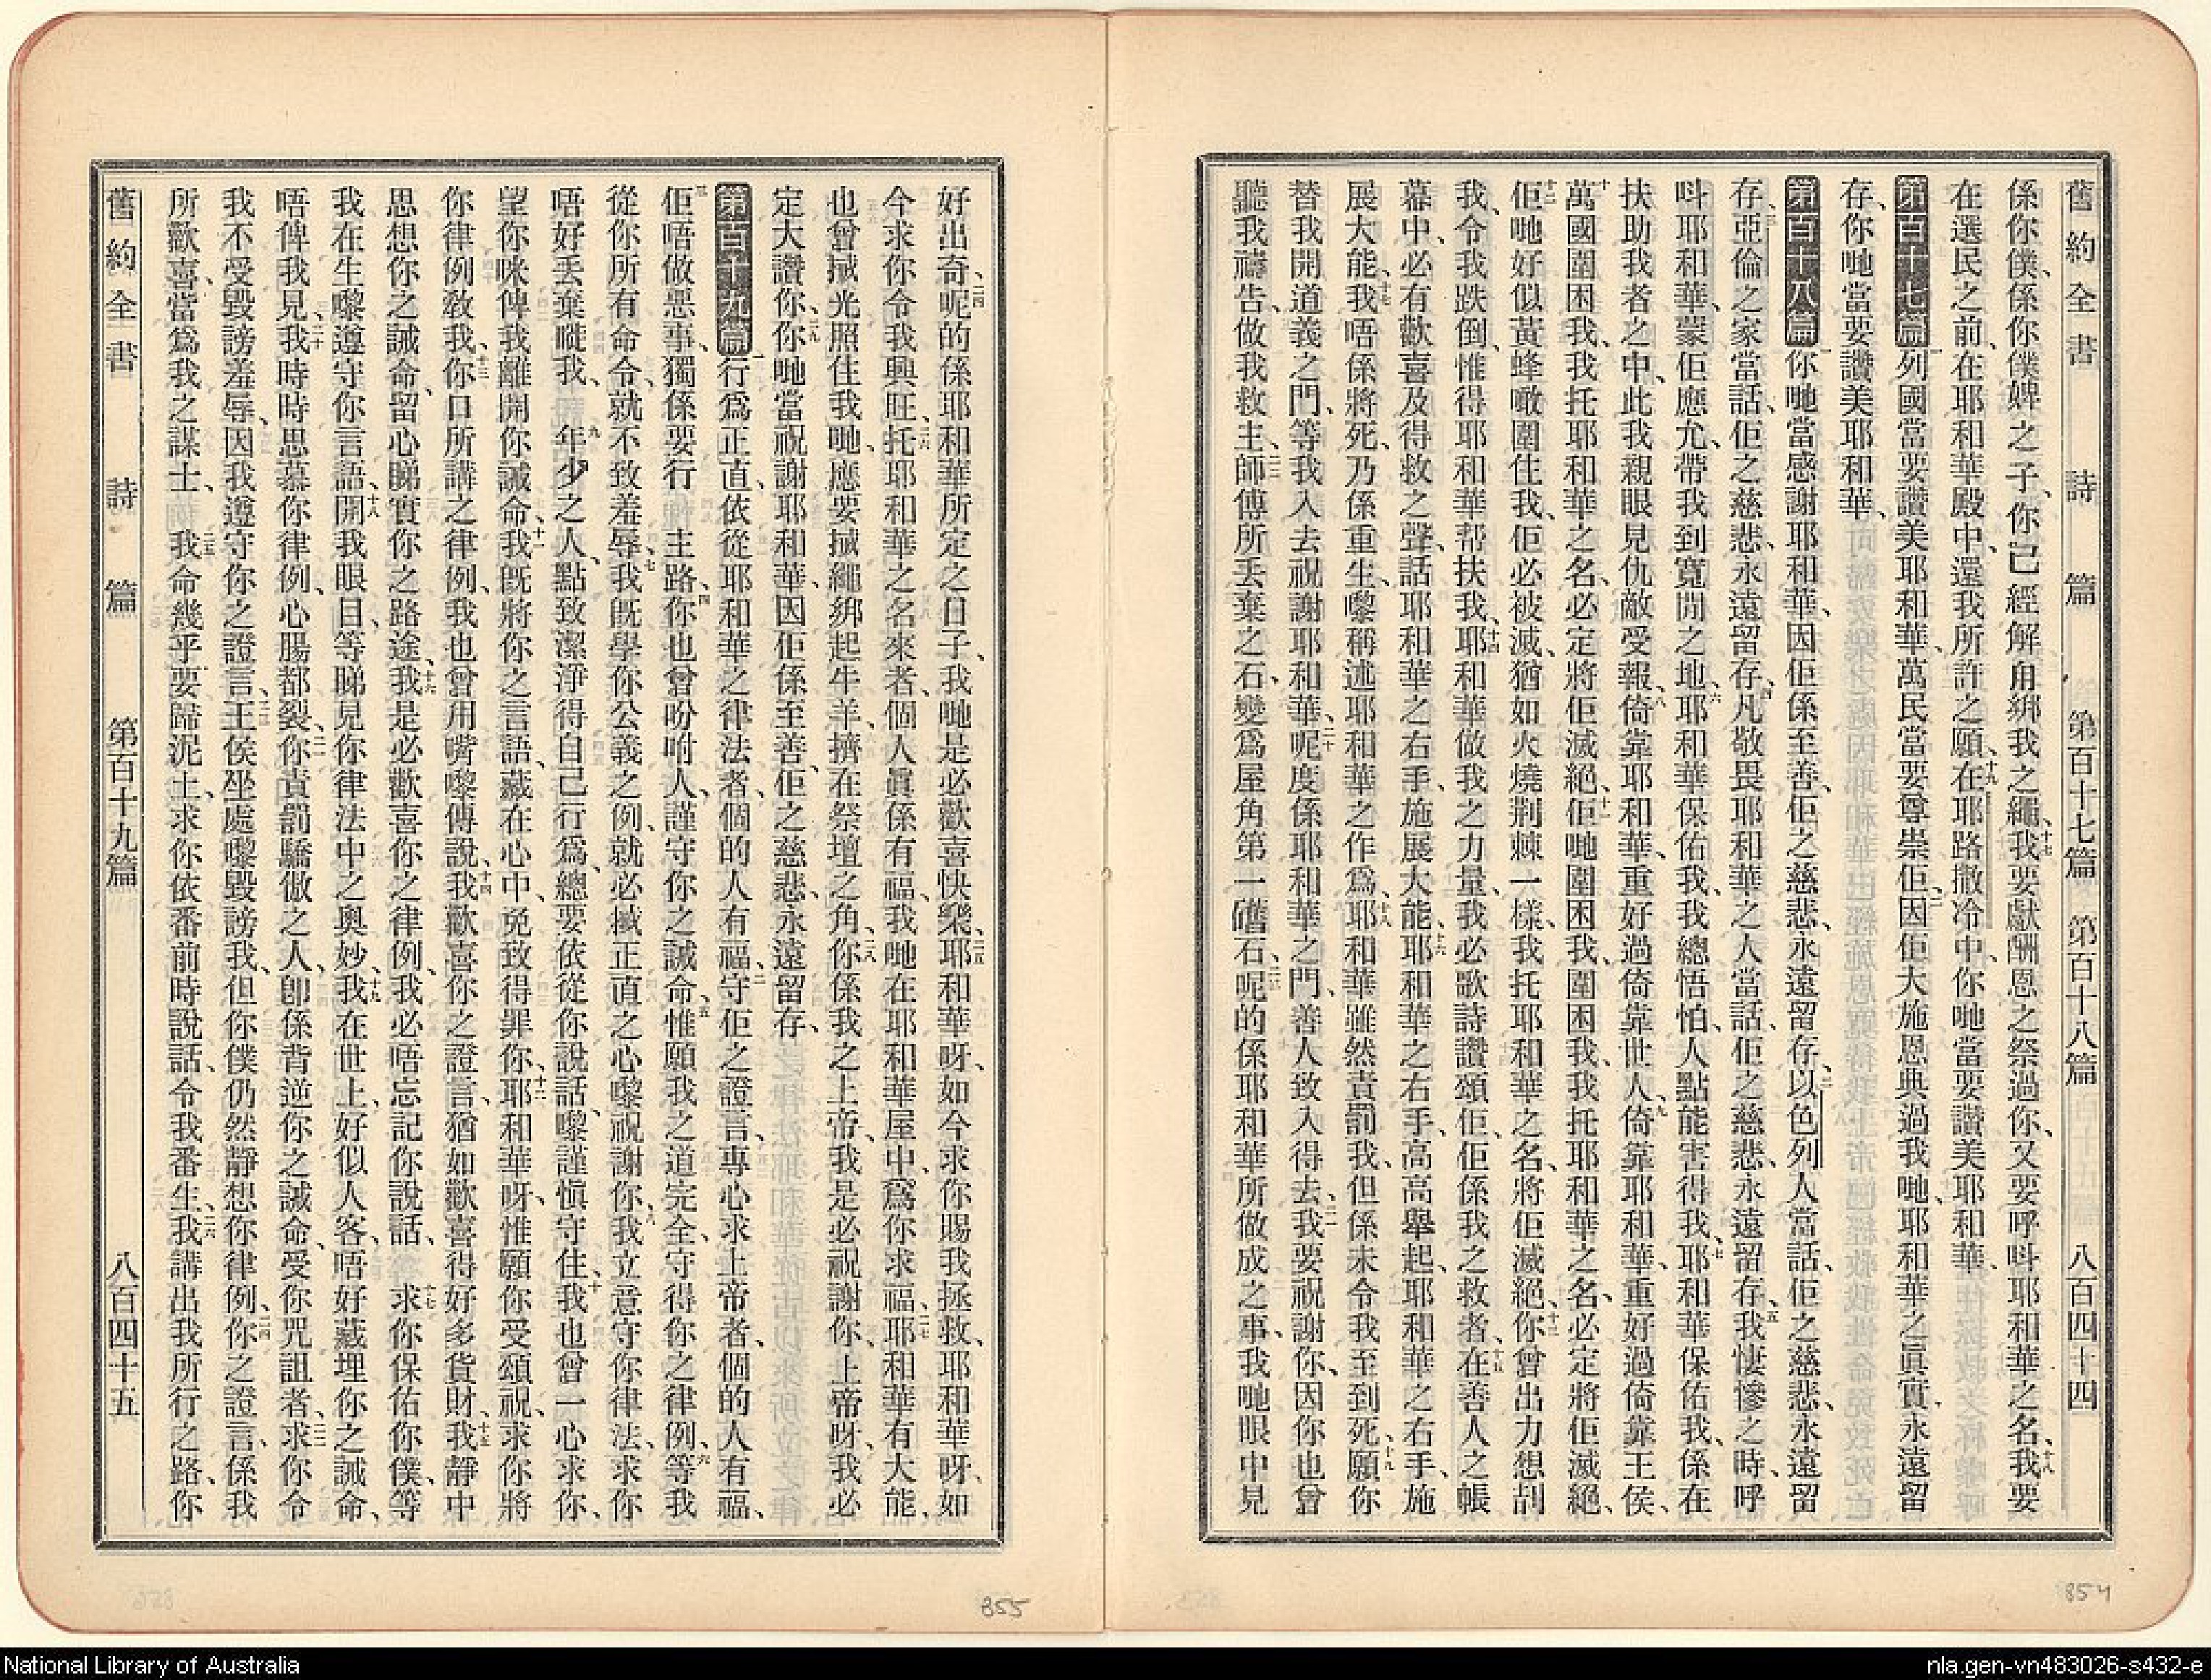 舊約全書 詩篇 第百十七篇 第百十八篇 八百四十四
係你僕、係你僕婢之子、你已經解甪綁我之繩、十七我要獻酬恩之祭過你、又要呼呌耶和華之名、十八我要
在選民之前、在耶和華殿中、還我所許之願、十九在耶路撒冷中、你哋當要讚美耶和華、
第百十七篇 一列國當要讚美耶和華、萬民當要尊崇佢、二因佢大施恩典過我哋、耶和華之眞實、永遠留
存、你哋當要讚美耶和華、
第百十八篇 一你哋當感謝耶和華、因佢係至善、佢之慈悲、永遠留存、二以色列人當話、佢之慈悲、永遠留
存、三亞倫之家當話、佢之慈悲、永遠留存、四凡敬畏耶和華之人當話、佢之慈悲、永遠留存、五我悽慘之時、呼
呌耶和華、蒙佢應允、帶我到寬闊之地、六耶和華保佑我、我總唔怕、人點能害得我、七耶和華保佑我、係在
扶助我者之中、此我親眼見仇敵受報、八倚靠耶和華、重好過倚靠世人、九倚靠耶和華、重好過倚靠王侯、
十萬國圍困我、我托耶和華之名、必定將佢滅絕、十一佢哋圍困我、圍困我、我托耶和華之名、必定將佢滅絕、
十二佢哋好似黃蜂噉圍住我、佢必被滅、猶如火燒荆棘一樣、我托耶和華之名、將佢滅絕、十三你曾出力想剒
我、令我跌倒、惟得耶和華帮扶我、十四耶和華做我之力量、我必歌詩讚頌佢、佢係我之救者、十五在善人之帳
幕中、必有歡喜及得救之聲、話耶和華之右手、施展大能、十六耶和華之右手、高高舉起、耶和華之右手、施
展大能、十七我唔係將死、乃係重生、嚟稱述耶和華之作爲、十八耶和華雖然責罰我、但係未令我至到死、十九願你
替我開道義之門、等我入去祝謝耶和華、二十呢度係耶和華之門、善人致入得去、二一我要祝謝你、因你也曾
聽我禱告、做我救主、二二師傅所丢棄之石、變爲屋角第一磪石、二三呢的係耶和華所做成之事、我哋眼中見
好出奇、二四呢的係耶和華所定之日子、我哋是必歡喜快樂、二五耶和華呀、如今求你賜我拯救、耶和華呀、如
今求你令我興旺、二六托耶和華之名來者、個人眞係有福、我哋在耶和華屋中、爲你求福、二七耶和華有大能、
也曾搣光照住我哋、應要搣繩綁起牛羊、擠在祭壇之角、二八你係我之上帝、我是必祝謝你、上帝呀、我必
定大讚你、二九你哋當祝謝耶和華、因佢係至善、佢之慈悲、永遠留存、
第百十九篇 一行爲正直、依從耶和華之律法者、個的人有福、二守佢之證言、專心求上帝者、個的人有福、
三佢唔做惡事、獨係要行 主路、四你也曾吩咐人、謹守你之誡命、五惟願我之道完全、守得你之律例、六等我
從你所有命令、就不致羞辱、七我既學你公義之例、就必搣正直之心嚟祝謝你、八我立意守你律法、求你
唔好丢棄嘥我、 九年少之人、點致潔淨得自己行爲、總要依從你說話、嚟謹愼守住、十我也曾一心求你、
望你咪俾我離開你誡命、十一我既將你之言語、藏在心中、免致得罪你、十二耶和華呀、惟願你受頌祝、求你將
你律例教我、十三你口所講之律例、我也曾用嘴嚟傳說、十四我歡喜你之證言、猶如歡喜得好多貨財、十五我靜中
思想你之誡命、留心睇實你之路途、十六我是必歡喜你之律例、我必唔忘記你說話、 十七求你保佑你僕、等
我在生嚟遵守你言語、十八開我眼目、等睇見你律法中之奧妙、十九我在世上、好似人客、唔好藏埋你之誡命、
唔俾我見、二十我時時思慕你律例、心腸都裂、二一你責罰驕傲之人、卽係背逆你之誡命、受你咒詛者、二二求你令
我不受毀謗羞辱、因我遵守你之證言、二三王侯坐處嚟毀謗我、但你僕仍然靜想你律例、二四你之證言、係我
所歡喜、當爲我之謀士、 二五我命幾乎要歸泥土、求你依番前時說話、令我番生、二六我講出我所行之路、你
舊約全書 詩篇 第百十九篇 八百四十五
854
855
National Library of Australia
nla.gen-vn483026-s432-e